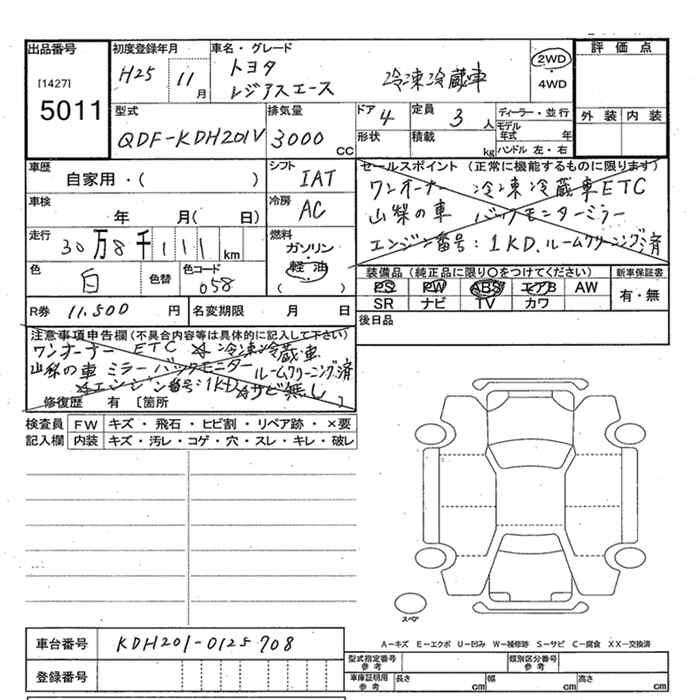 出品番号 初度登録年月 車名・グレード 評価点
[1427]
5011
H25 11月 トヨタ レジアスエース 冷凍冷蔵車 2WD・4WD
外装 内装
型式 排気量 ドア 定員 ディーラー・並行
QDF-KDH201V 3000CC 4 3人 モデル年式 年
形状 積載 kg ハンドル 左・右
車歴 シフト セールスポイント (正常に機能するものに限ります)
自家用・( ) IAT ワンオーナー 冷凍冷蔵車ETC
車検 冷房 山梨の車 バックモニターミラー
年 月( 日) AC エンジン番号:1KD. ルームクリーニング済
走行 燃料
30万8千111km ガソリン・軽油 ( )
色 色替 色コード 装備品(純正品に限り○をつけてください) 新車保証書
白 058 PS PW ABS エアB AW 有・無
SR ナビ TV カワ
R券 11,500 円 名変期限 月 日 後日品
注意事項申告欄(不具合内容等は具体的に記入して下さい)
ワンオーナー ETC ☆冷凍冷蔵車
山梨の車 ミラーバックモニター ルームクリーニング済
☆エンジン番号:1KD ☆サビ無し
修復歴 有 [箇所 ]
検査員記入欄 FW キズ・飛石・ヒビ割・リペア跡・×要
内装 キズ・汚レ・コゲ・穴・スレ・キレ・破レ
スペア
車台番号 KDH201-0125708
A-キズ E-エクボ U-凹み W-補修跡 S-サビ C-腐食 XX-交換済
登録番号
型式指定番号参考 類別区分番号参考
車庫証明用参考 長さ cm 幅 cm 高さ cm